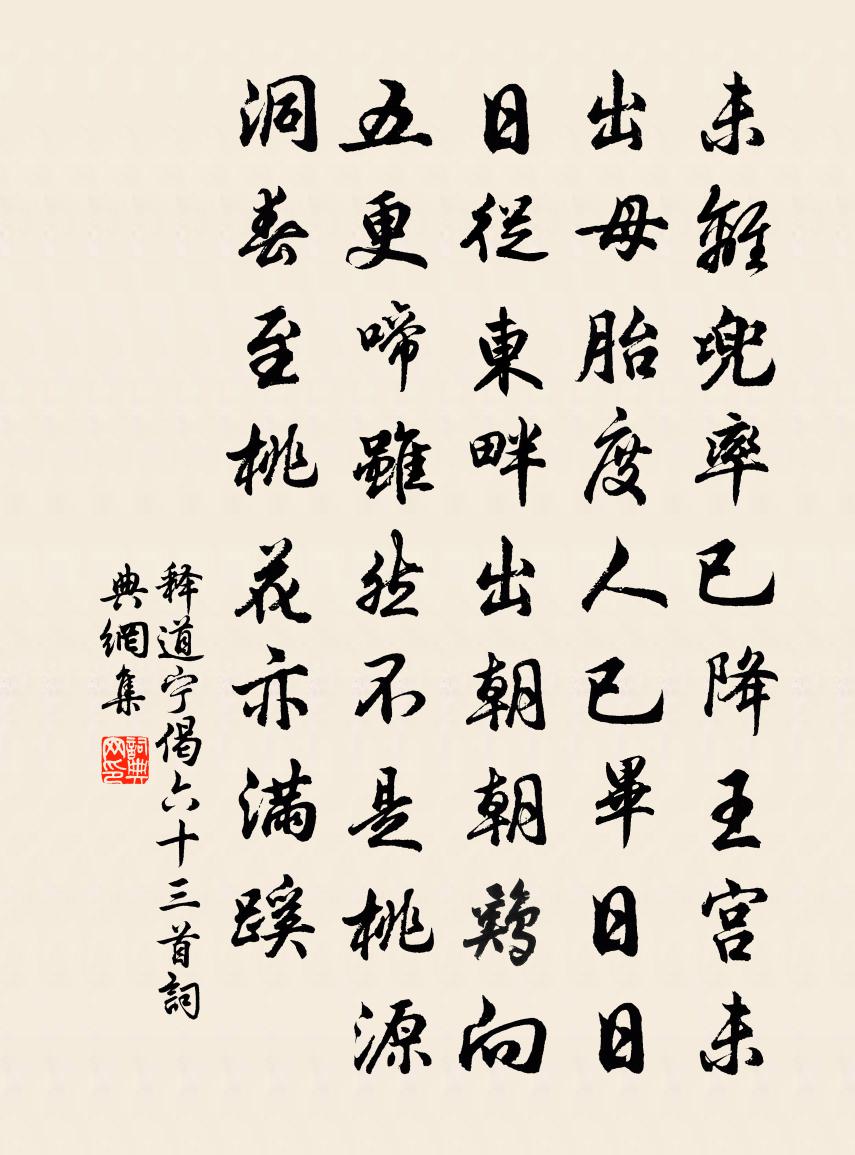 未離兜率已降王宫未
出母胎度人已畢日日
日從東畔出朝朝鷄向
五更啼雖然不是桃源
洞春至桃花亦滿蹊
释道宁偈六十三首詞
典網集
詞典網印